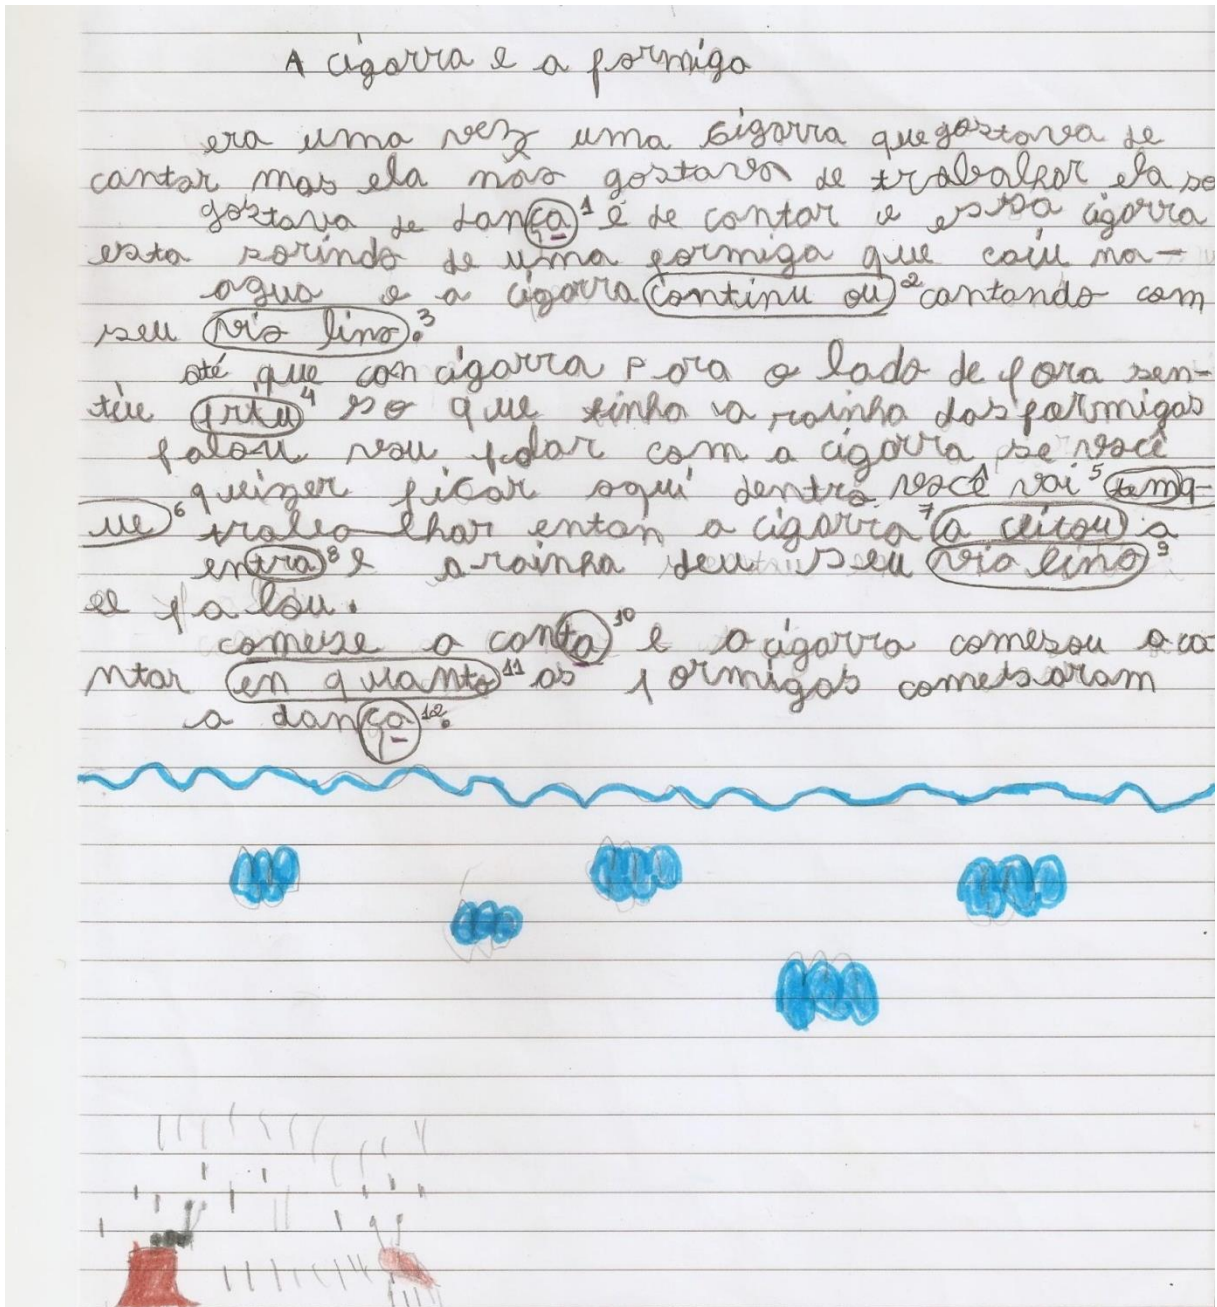 A cigarra e a formiga
era uma vez uma sigarra que gostava de
cantar mas ela não gostava de trabalhar ela so
gostava de dança 1 é de contar e essa cigarra
esta sorindo de uma formiga que caiu na-
agua e a cigarra continu ou 2 cantando com
seu vio lino. 3
até que con cigarra p ora o lado de fora sen-
tiu friu 4 so que tinha a rainha das formigas
falou vou falar com a cigarra se você
queizer ficar aqui dentro você vai 5 temq-
ue 6 traba lhar entan a cigarra 7 a ceitou a
entra 8 e a rainha deu seu vio lino 9
e fa lou.
comeise a conta 10 e a cigarra comesou a ca
ntar en quanto 11 as formigas comesaram
a dança 12.